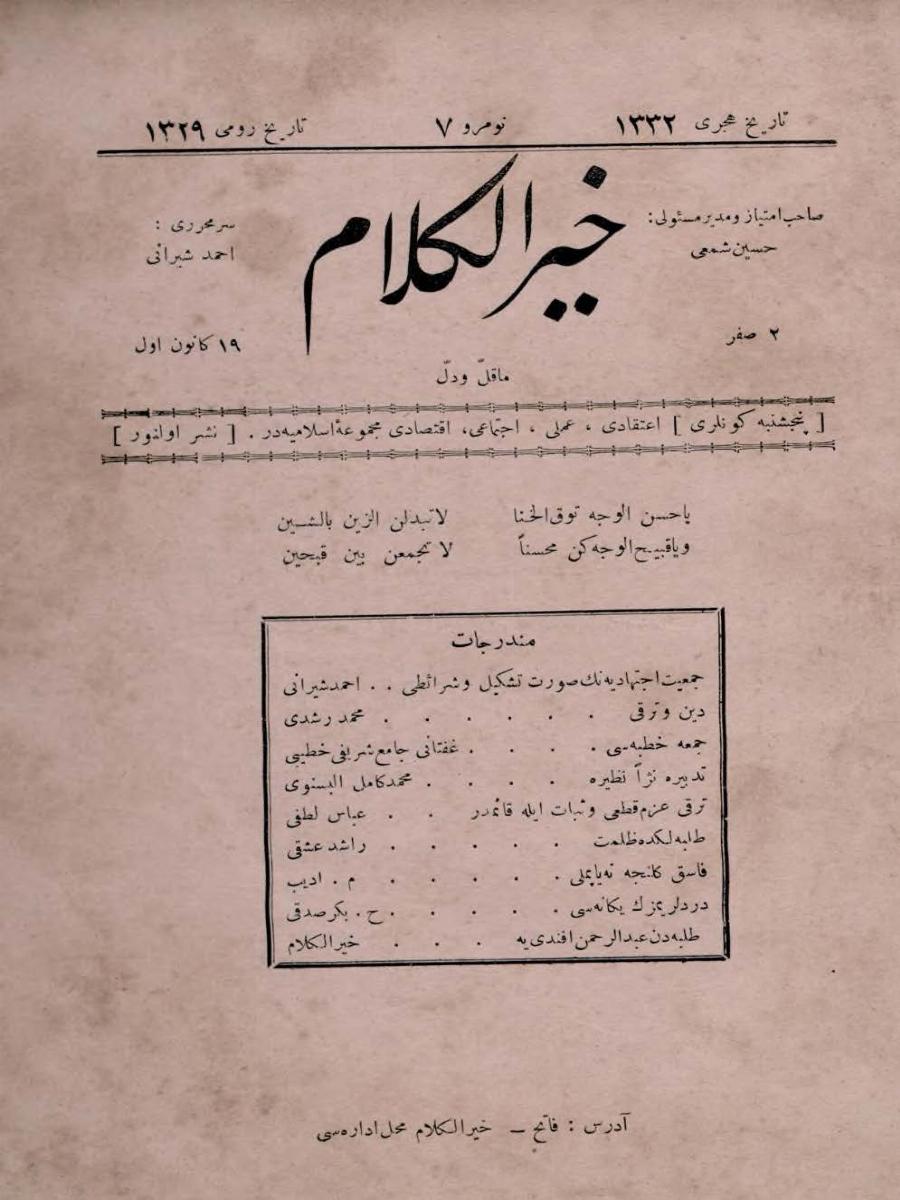 تاریخ هجری ۱۳۳۲ نومرو ۷ تاریخ رومی ۱۳۲۹
خیرالکلام
صاحب امتیاز ومدیر مسئولی:
حسین شمعی
سرمحرری :
احمد شیرانی
۲ صفر
۱۹ کانون اول
ماقلّ ودلّ
[ پنجشنبه کونلری ] اعتقادی ، عملی ، اجتماعی، اقتصادی مجموعهٔ اسلامیه‌در . [ نشر اولنور ]
یاحسن الوجه توق الخنا لاتبدلن الزین بالشین
ویاقبیح الوجه کن محسناً لا تجمعن بین قبحین
مندرجات
جمعیت اجتهادیه نك صورت تشکیل وشرائطی . . احمد شیرانی
دین وترقی . . . . . . محمد رشدی
جمعه خطبه‌سی . . . . غفتانی جامع شریفی خطیبی
تدبیره نژاً نظیره . . . . . محمد کامل البسنوی
ترقی عزم قطعی وثبات ایله قائمدر . . . عباس لطفی
طلبه لکده ظلمت . . . . . راشد عشقی
فاسق کلنجه نه‌یاپملی . . . . . . م . ادیب
دردلریمزك یکانه‌سی . . . . . ح . بکر صدقی
طلبه‌دن عبدالرحمن افندی‌یه . . . خیرالکلام
آدرس : فاتح — خیرالکلام محل اداره‌سی